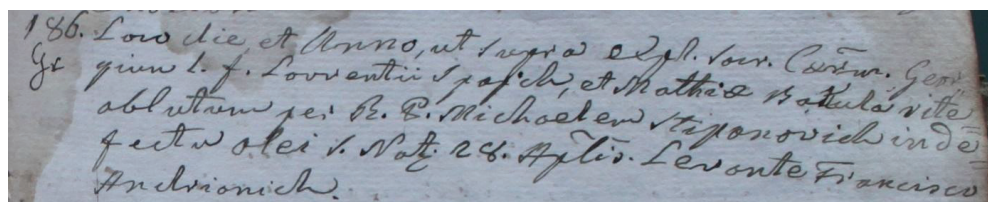 186. Loco die, et Anno, ut supra expl. Sacr. Cærm. Geor
Gr gium l. f. Laurentii Spaich, et Mathiæ Bakula rite
ablutum per R. P. Michaelem Stiponovich in de=
fectu olei S. Nat. 28. Aplis. Levante Francisco
Andrionich.